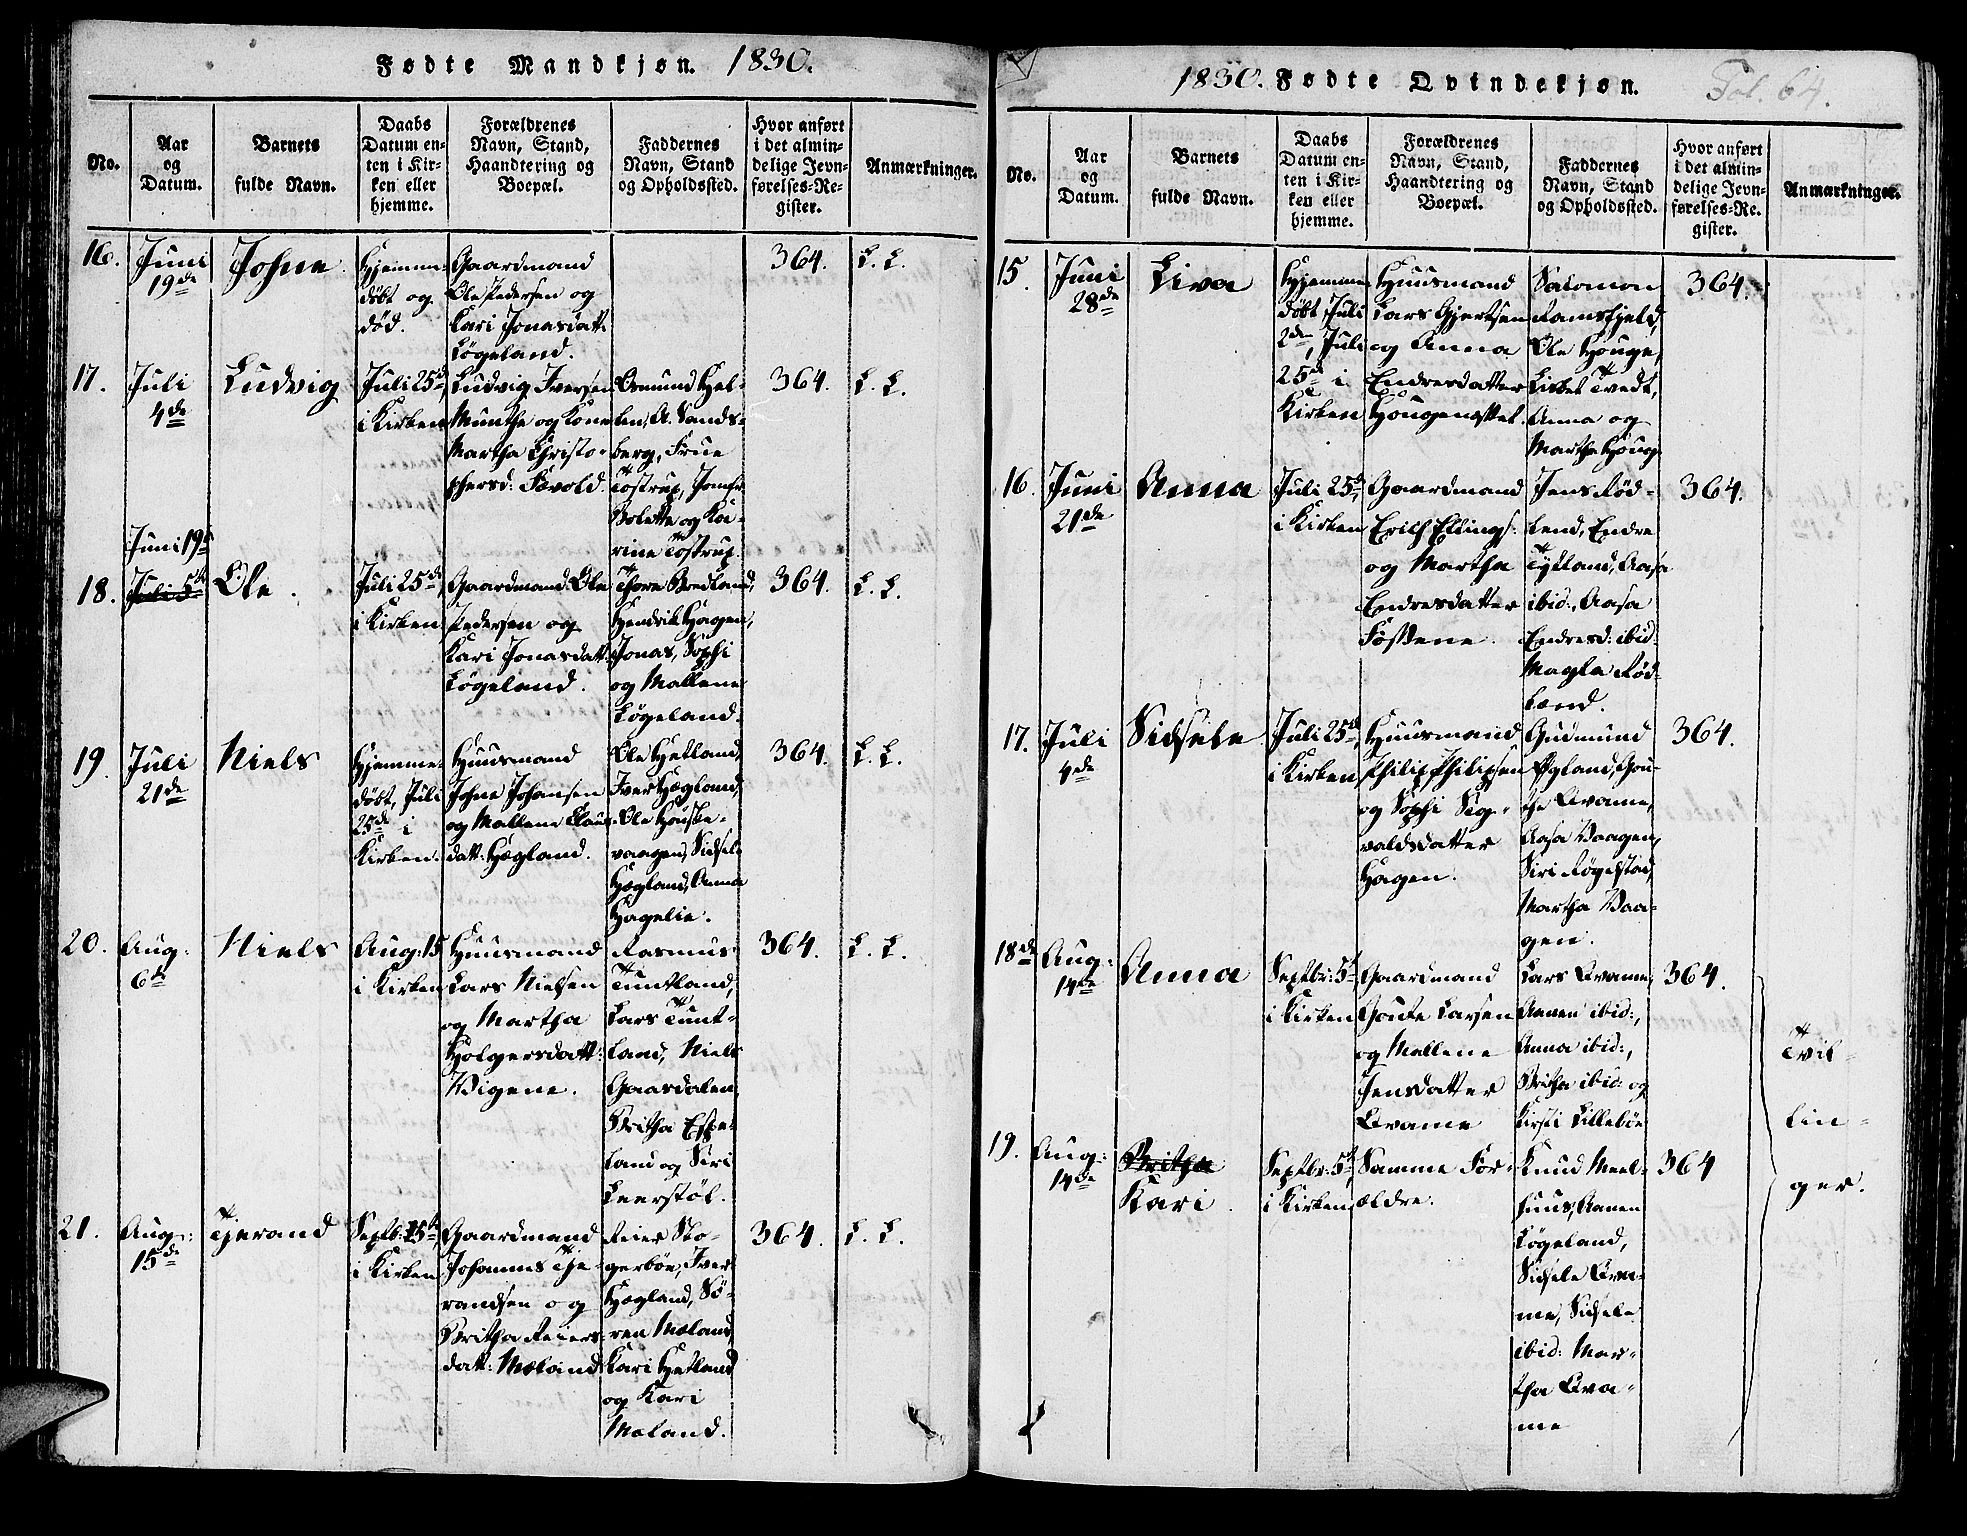 Fødte Mandkjøn. 1830.
No.
Aar
og
Datum.
Barnets
fulde Navn.
Daabs
Datum en-
ten i Kir-
ken eller
hjemme.
Forældrenes
Navn, Stand,
Haandtering og
Boepæl.
Faddernes
Navn, Stand
og Opholdssted.
Hvor anført
i det almin-
delige Jevn-
førelses-Re-
gister.
Anmærkninger.
16.
Juni
19de
Johne
Hjemme-
døbt og
død.
Gaardmand
Ole Pedersen og
Kari Jonasdatt:
Løgeland.
364.
L. L.
17.
Juli
4de
Ludvig
Juli 25de,
i Kirken
Ludvig Iversen
Munthe og Kone
Martha Christo-
phersd:
Osmund Hel-
len, A. Sands-
berg, Frue
Tostrup, Jomfr
Bolette og Ka-
rine Tostrup.
364.
L. L.
18.
Juni 19de
Juli 5te
Ole.
Juli 25de,
i Kirken
Gaardmand Ole
Pedersen og
Kari Jonasdatt:
Løgeland.
Thore Bredland,
Hendrik Hagen,
Jonas, Sophi
og Mallene
Løgeland.
364.
L. L.
19.
Juli
21de
Niels
Hjemme-
døbt, Juli
25de i
Kirken.
Huusmand
Johne Johansen
og Mallene Claus-
datt: Hægland.
Ole Hetland,
Iver Hægland,
Ole Houske-
vaagen, Sidsele
Hægland, Anna
Hagelie.
364.
L. L.
20.
Aug:
6te
Niels
Aug: 15
i Kirken
Huusmand
Lars Nielsen
og Martha
Holgersdatt:
Vigene.
Rasmus
Tuntland,
Lars Tunt-
land, Niels
Gaasdalen,
Britha Espe-
land og Siri
Leerstøl.
364.
L. L.
21.
Aug:
15de
Tjerand
i Kirken
Gaardmand
Johannes Tje-
randsen og
Britha Reiers-
datt: Mæland
Reier Sto-
gerbøe, Iver
Hægland, Sø-
ren Mæland,
Kari Hetland
og Kari
Mæland.
364.
L. L.
1830. Fødte Qvindekjøn. Fol. 64.
No.
Aar
og
Datum.
Barnets
fulde Navn.
Daabs
Datum en-
ten i Kir-
ken eller
hjemme.
Forældrenes
Navn, Stand,
Haandtering og
Boepæl.
Faddernes
Navn, Stand
og Opholdssted.
Hvor anført
i det almin-
delige Jevn-
førelses-Re-
gister.
Anmærkninger.
15.
Juni
28de
Liva
Hjemme
døbt, Juli
2de, Juli
25de i
Kirken
Huusmand
Lars Gjertsen
og Anna
Endresdatter
Salomon
Ramsfjeld,
Ole Houge,
Lisbet Tvedt,
Anna og
Martha Houg
364.
16.
Juni
21de
Anna
Juli 25de,
i Kirken
Gaardmand
Erich Ellings:
og Martha
Endresdatter
Fossene.
Jens Rød-
land, Endre
Tysland, Aasa
ibid:, Aasa
Endresd: ibid:
Magla Rød-
land.
364.
17.
Juli
4de
Sidsele
Juli 25de,
i Kirken
Huusmand
Philip Philipsen
og Sophi Sig-
valdsdatter
Hagen.
Gudmund
Egland, Gou-
the Qvame,
Aasa Vaagen,
Siri Røgestad,
Martha Vaa-
gen.
364.
18de
Aug:
14de
Anna
Septbr: 5te
i Kirken
Gaardmand
Goute Larsen
og Mallene
Jensdatter
Qvame
Lars Qvame,
Aanen ibid:,
Anna ibid:,
Britha ibid: og
Kirsti Lillebøe
364.
Tvil-
lin-
ger.
19.
Aug:
14de
Britha
Kari.
Septbr: 5te,
i Kirken
Samme For-
ældre.
Knud Meel-
huus, Aanen
Løgeland,
Sidsele Qva-
me, Sidsele
ibid: Mar-
tha Qva-
me
364